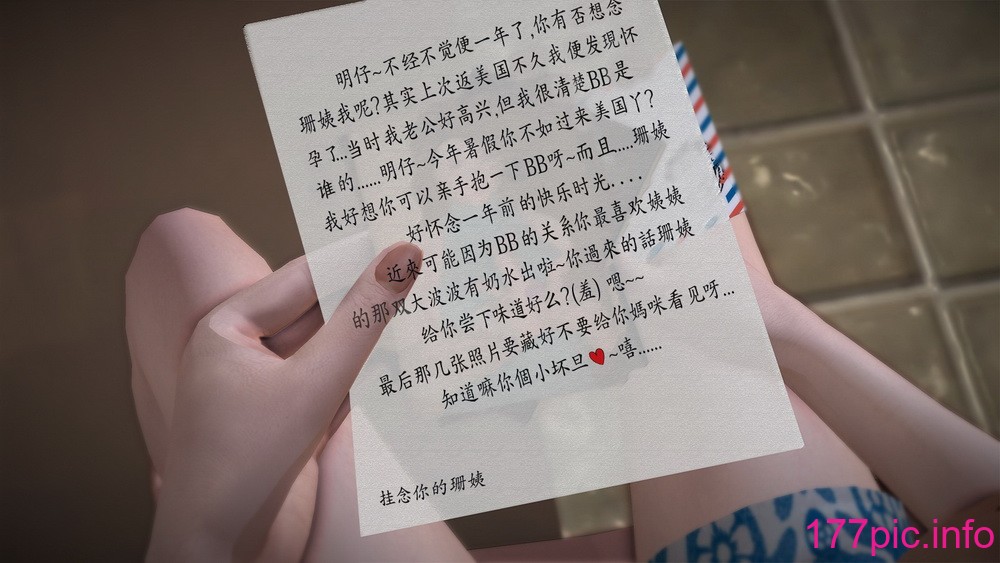 明仔~不经不觉便一年了,你有否想念
珊姨我呢?其实上次返美国不久我便发現怀
孕了...当时我老公好高兴,但我很清楚BB是
谁的......明仔~今年暑假你不如过来美国丫?
我好想你可以亲手抱一下BB呀~而且....珊姨
好怀念一年前的快乐时光....
近來可能因为BB的关系你最喜欢姨姨
的那双大波波有奶水出啦~你過來的話珊姨
给你尝下味道好么?(羞) 嗯~~
最后那几张照片要藏好不要给你媽咪看见呀...
知道嘛你個小坏旦❤~嘻......
挂念你的珊姨
177pic.info